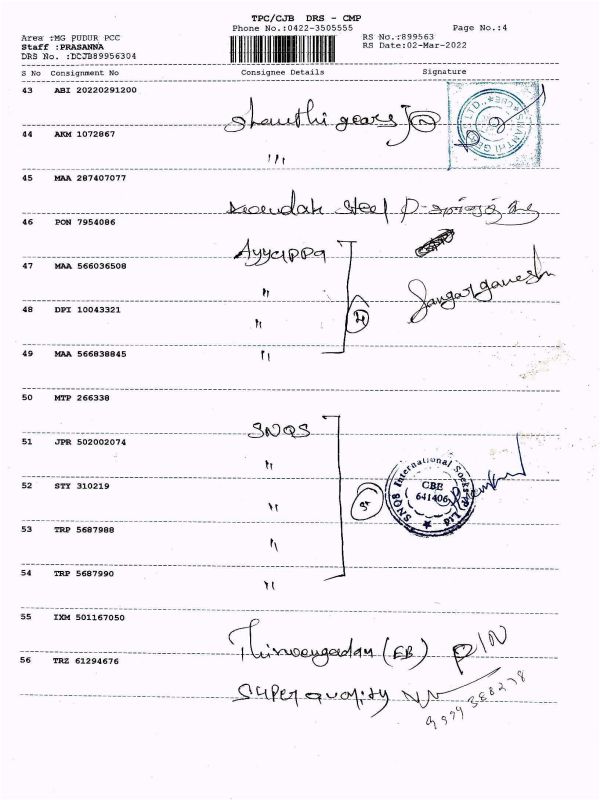 TPC/CJB DRS - CMP
Phone No.:0422-3505555
Page No.:4
Area :MG PUDUR PCC
Staff :PRASANNA
DRS No. :DCJB89956304
RS No.:899563
RS Date:02-Mar-2022
S No Consignment No Consignee Details Signature
43 ABI 20220291200
Shanthi gears
44 AKM 1072867
"
45 MAA 287407077
Steel
46 PON 7954086
Ayyappa
47 MAA 566036508
"
Sangarganesh
48 DPI 10043321
"
49 MAA 566838845
"
50 MTP 266338
SNQS
51 JPR 502002074
"
SNQS International Socks (P) Ltd
CBE
641406
52 STY 310219
"
53 TRP 5687988
"
54 TRP 5687990
"
55 IXM 501167050
Thirvengadam (EB)
56 TRZ 61294676
Super quality